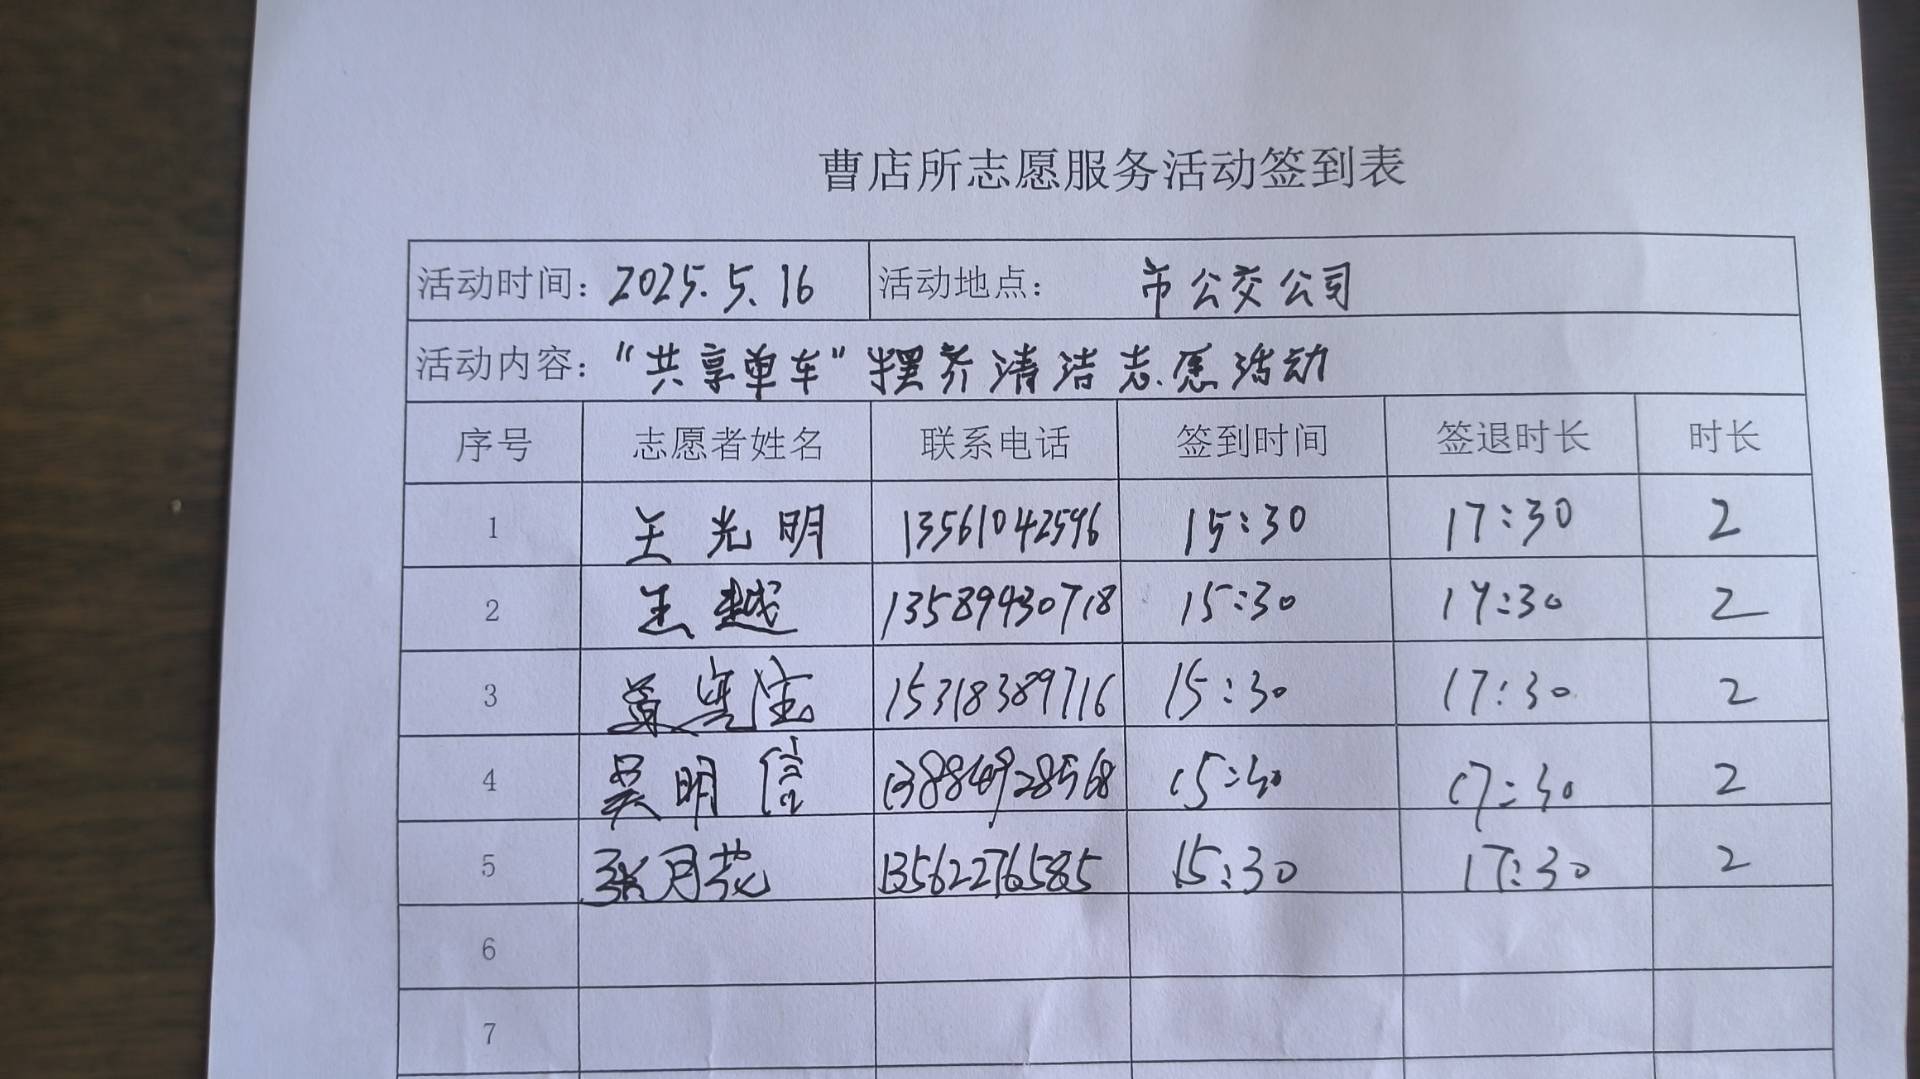 曹店所志愿服务活动签到表
活动时间：2025.5.16 活动地点： 市公交公司
活动内容："共享单车"摆齐清洁志愿活动
序号 志愿者姓名 联系电话 签到时间 签退时长 时长
1 王光明 13561042596 15:30 17:30 2
2 王越 13589430718 15:30 17:30 2
3 15318389716 15:30 17:30 2
4 吴明信 15:30 17:30 2
5 张月花 13562276585 15:30 17:30 2
6
7